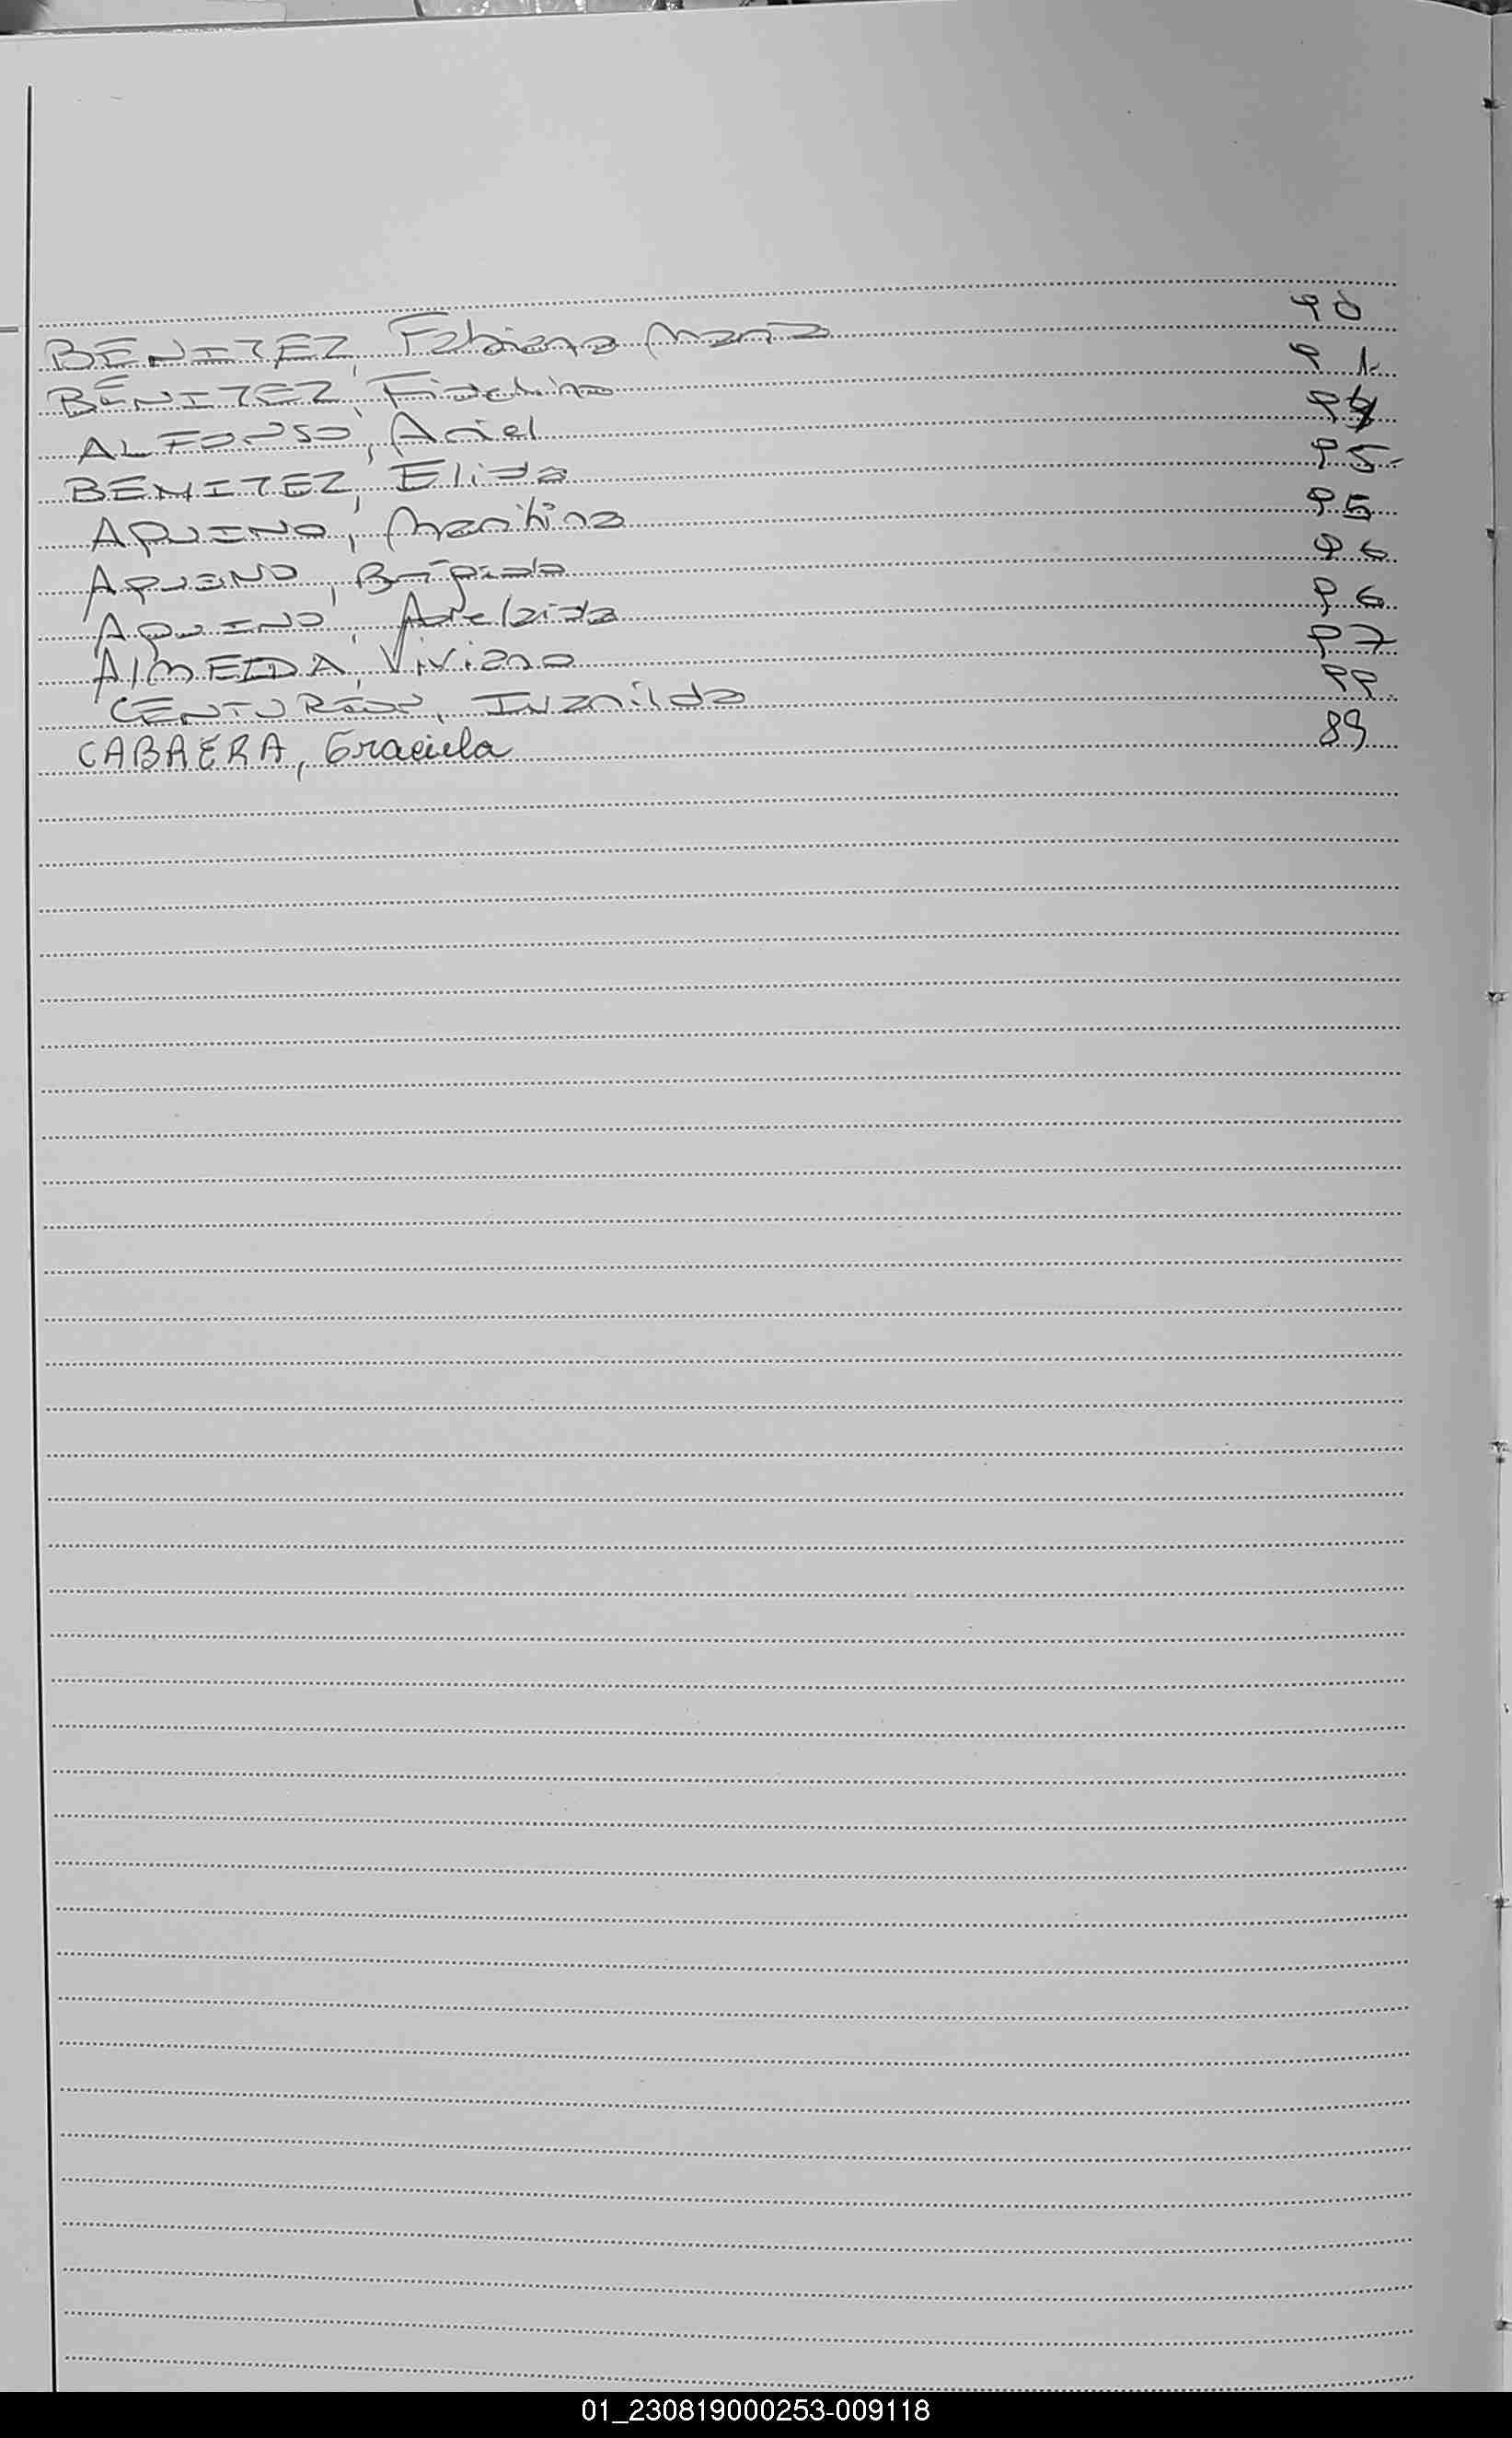 BENITEZ, Fabiana Maria 90
BENITEZ, Fidelina 91
ALFONSO, Ariel 94
BENITEZ, Elida 95
AQUINO, Maritina 95
AQUINO, Brígida 96
AQUINO, Adelaida 96
AlMEIDA, Viviana 97
CENTURÓN, Ivanilda 99
CABRERA, Graciela 89
01_230819000253-009118